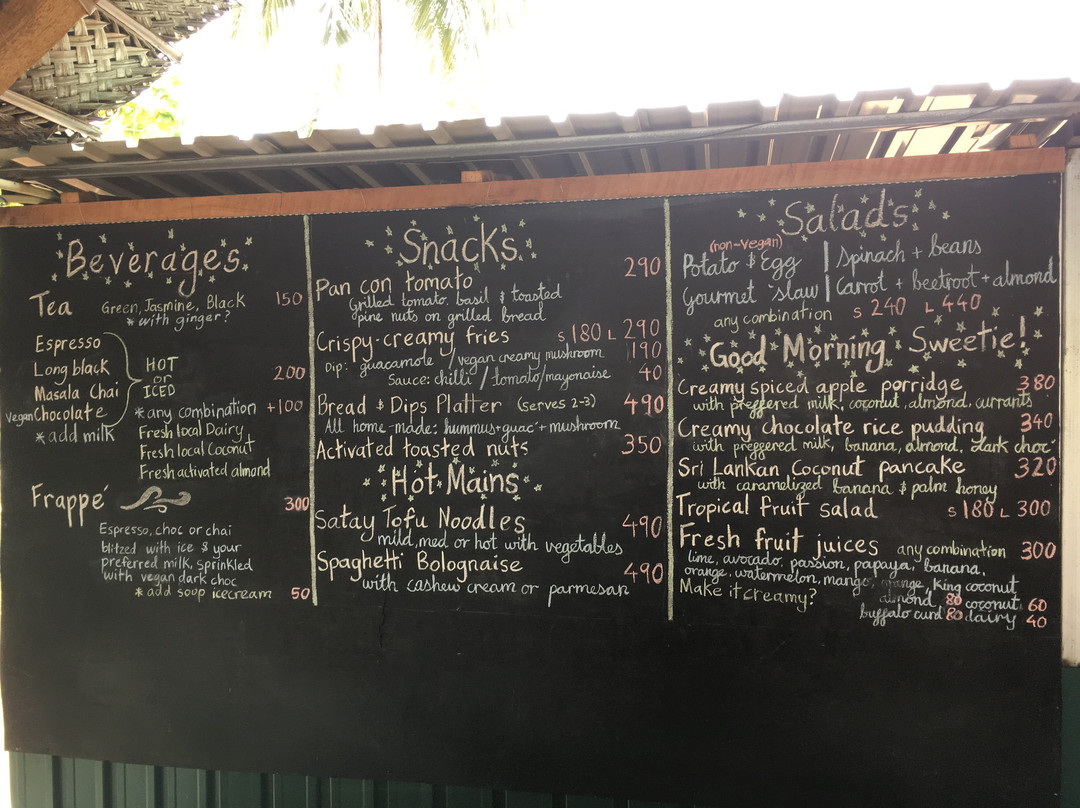 Beverages
Tea Green, Jasmine, Black 150
* with ginger?
Espresso
Long black
Masala Chai
vegan Chocolate
* add milk
HOT
or
ICED
200
* any combination +100
Fresh local Dairy
Fresh local Coconut
Fresh activated almond
Frappé 300
Espresso, choc or chai
blitzed with ice & your
preferred milk, sprinkled
with vegan dark choc
* add soup icecream 50
Snacks
Pan con tomato 290
Grilled tomato, basil & toasted
pine nuts on grilled bread
Crispy-creamy fries S 180 L 290
Dip: guacamole / vegan creamy mushroom 190
Sauce: chilli / tomato/mayonaise 40
Bread & Dips Platter (serves 2-3) 490
All home-made: hummus+guac'+ mushroom
Activated toasted nuts 350
Hot Mains
Satay Tofu Noodles 490
mild, med or hot with vegetables
Spaghetti Bolognaise 490
with cashew cream or parmesan
Salads
(non-vegan)
Potato & Egg | Spinach + beans
Gourmet 'slaw | Carrot + beetroot + almond
any combination S 240 L 440
Good Morning Sweetie!
Creamy spiced apple porridge 380
with preggered milk, coconut, almond, currants
Creamy chocolate rice pudding 340
with preggered milk, banana, almond, dark choc
Sri Lankan Coconut pancake 320
with caramelized banana & palm honey
Tropical fruit salad S 180 L 300
Fresh fruit juices any combination 300
lime, avocado, passion, papaya, banana,
orange, watermelon, mango, orange, king coconut
Make it creamy? almond 80 coconut 60
buffalo curd 80 dairy 40